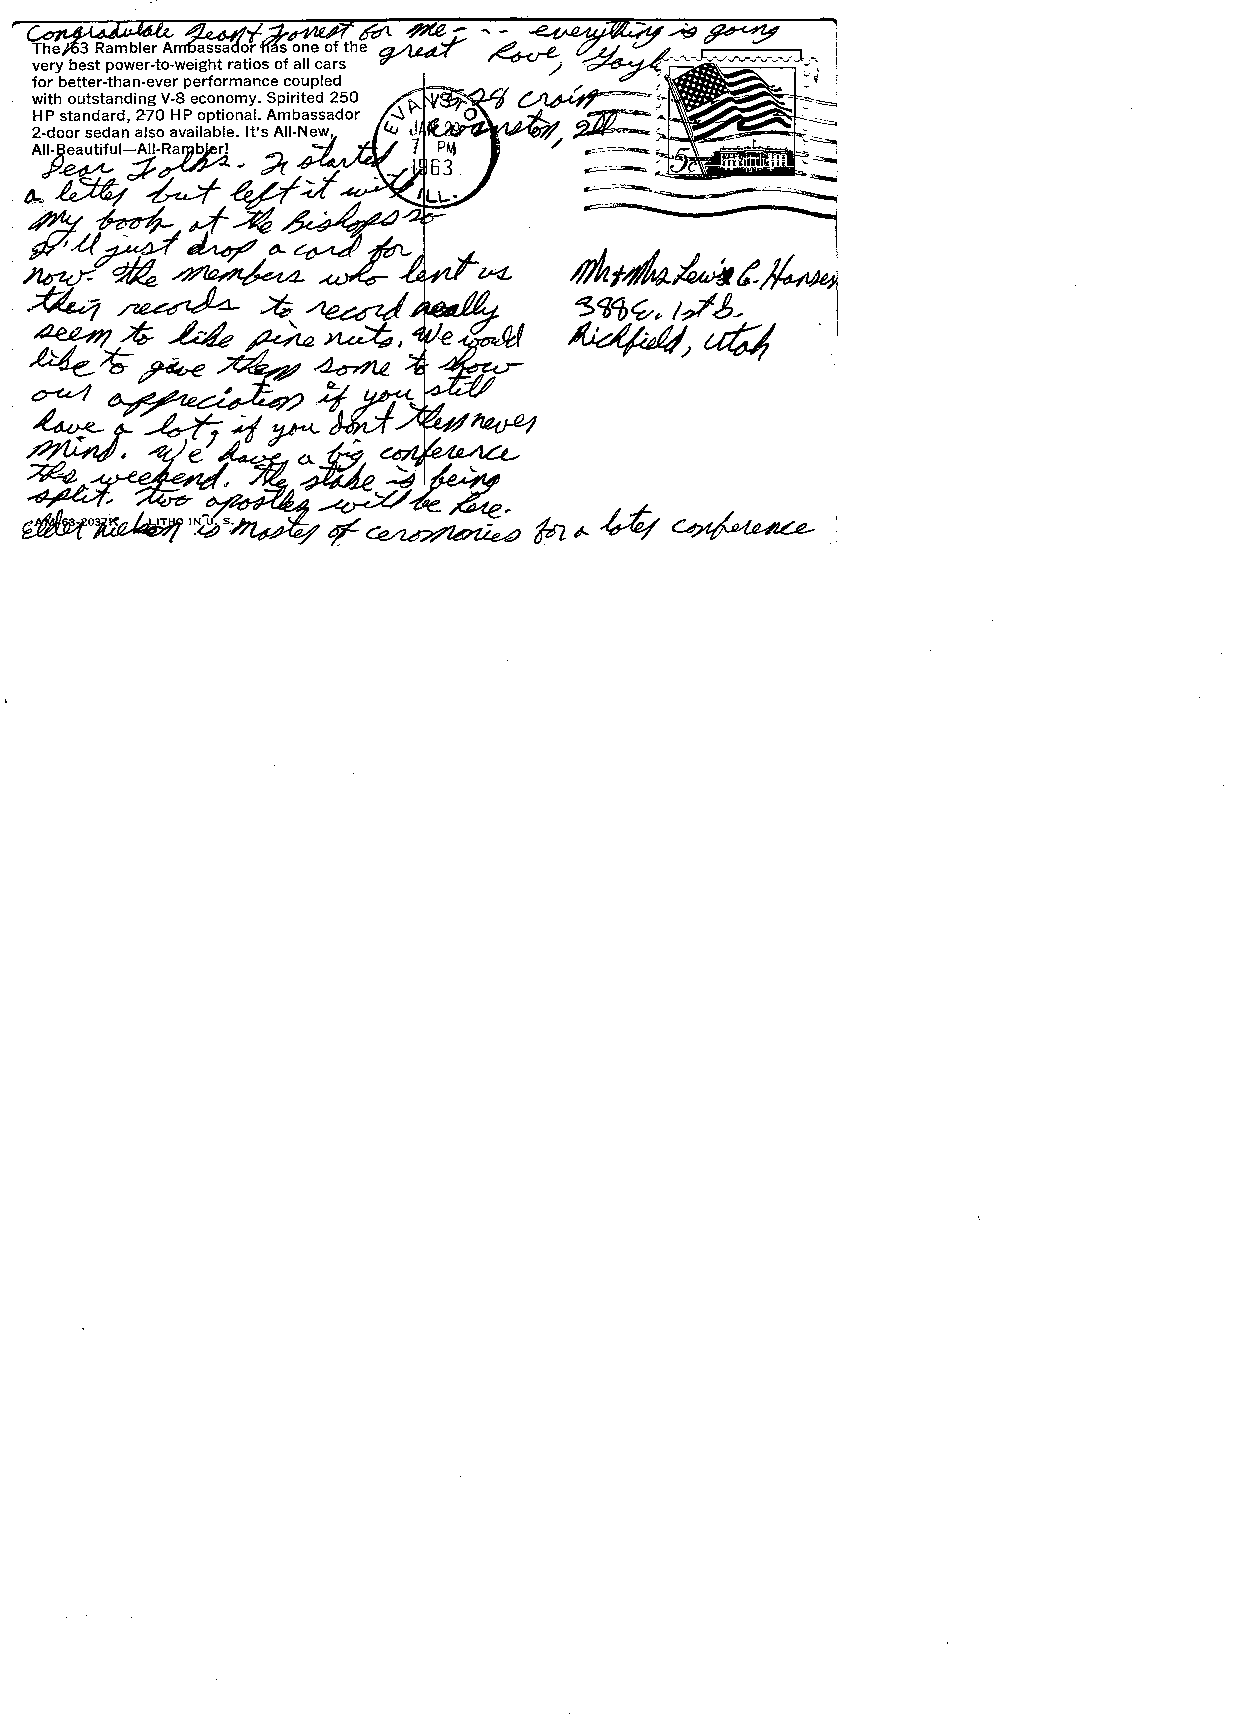 Congradulate Jean & Forrest for me - - - everything is going
great Love, Gayle
The '63 Rambler Ambassador has one of the
very best power-to-weight ratios of all cars
for better-than-ever performance coupled
with outstanding V-8 economy. Spirited 250
HP standard, 270 HP optional. Ambassador
2-door sedan also available. It's All-New,
All-Beautiful—All-Rambler!
Crain
Evanston, Ill
EVANSTON
PM
1963
ILL.
5c
Dear Folks - I started
a letter but left it with
my book at the Bishops so
I'll just drop a card for
now. The members who lent us
their records to record really
seem to like pine nuts. We would
like to give them some to show
our appreciation if you still
have a lot, if you don't then never
mind. We have a big conference
this weekend. The stake is being
split. Two apostles will be here.
Elder Nielson is master of ceromonies for a later conference
LITHO IN U.S.
Mr & Mrs Lewis C. Hansen
388 E. 1st S.
Richfield, Utah